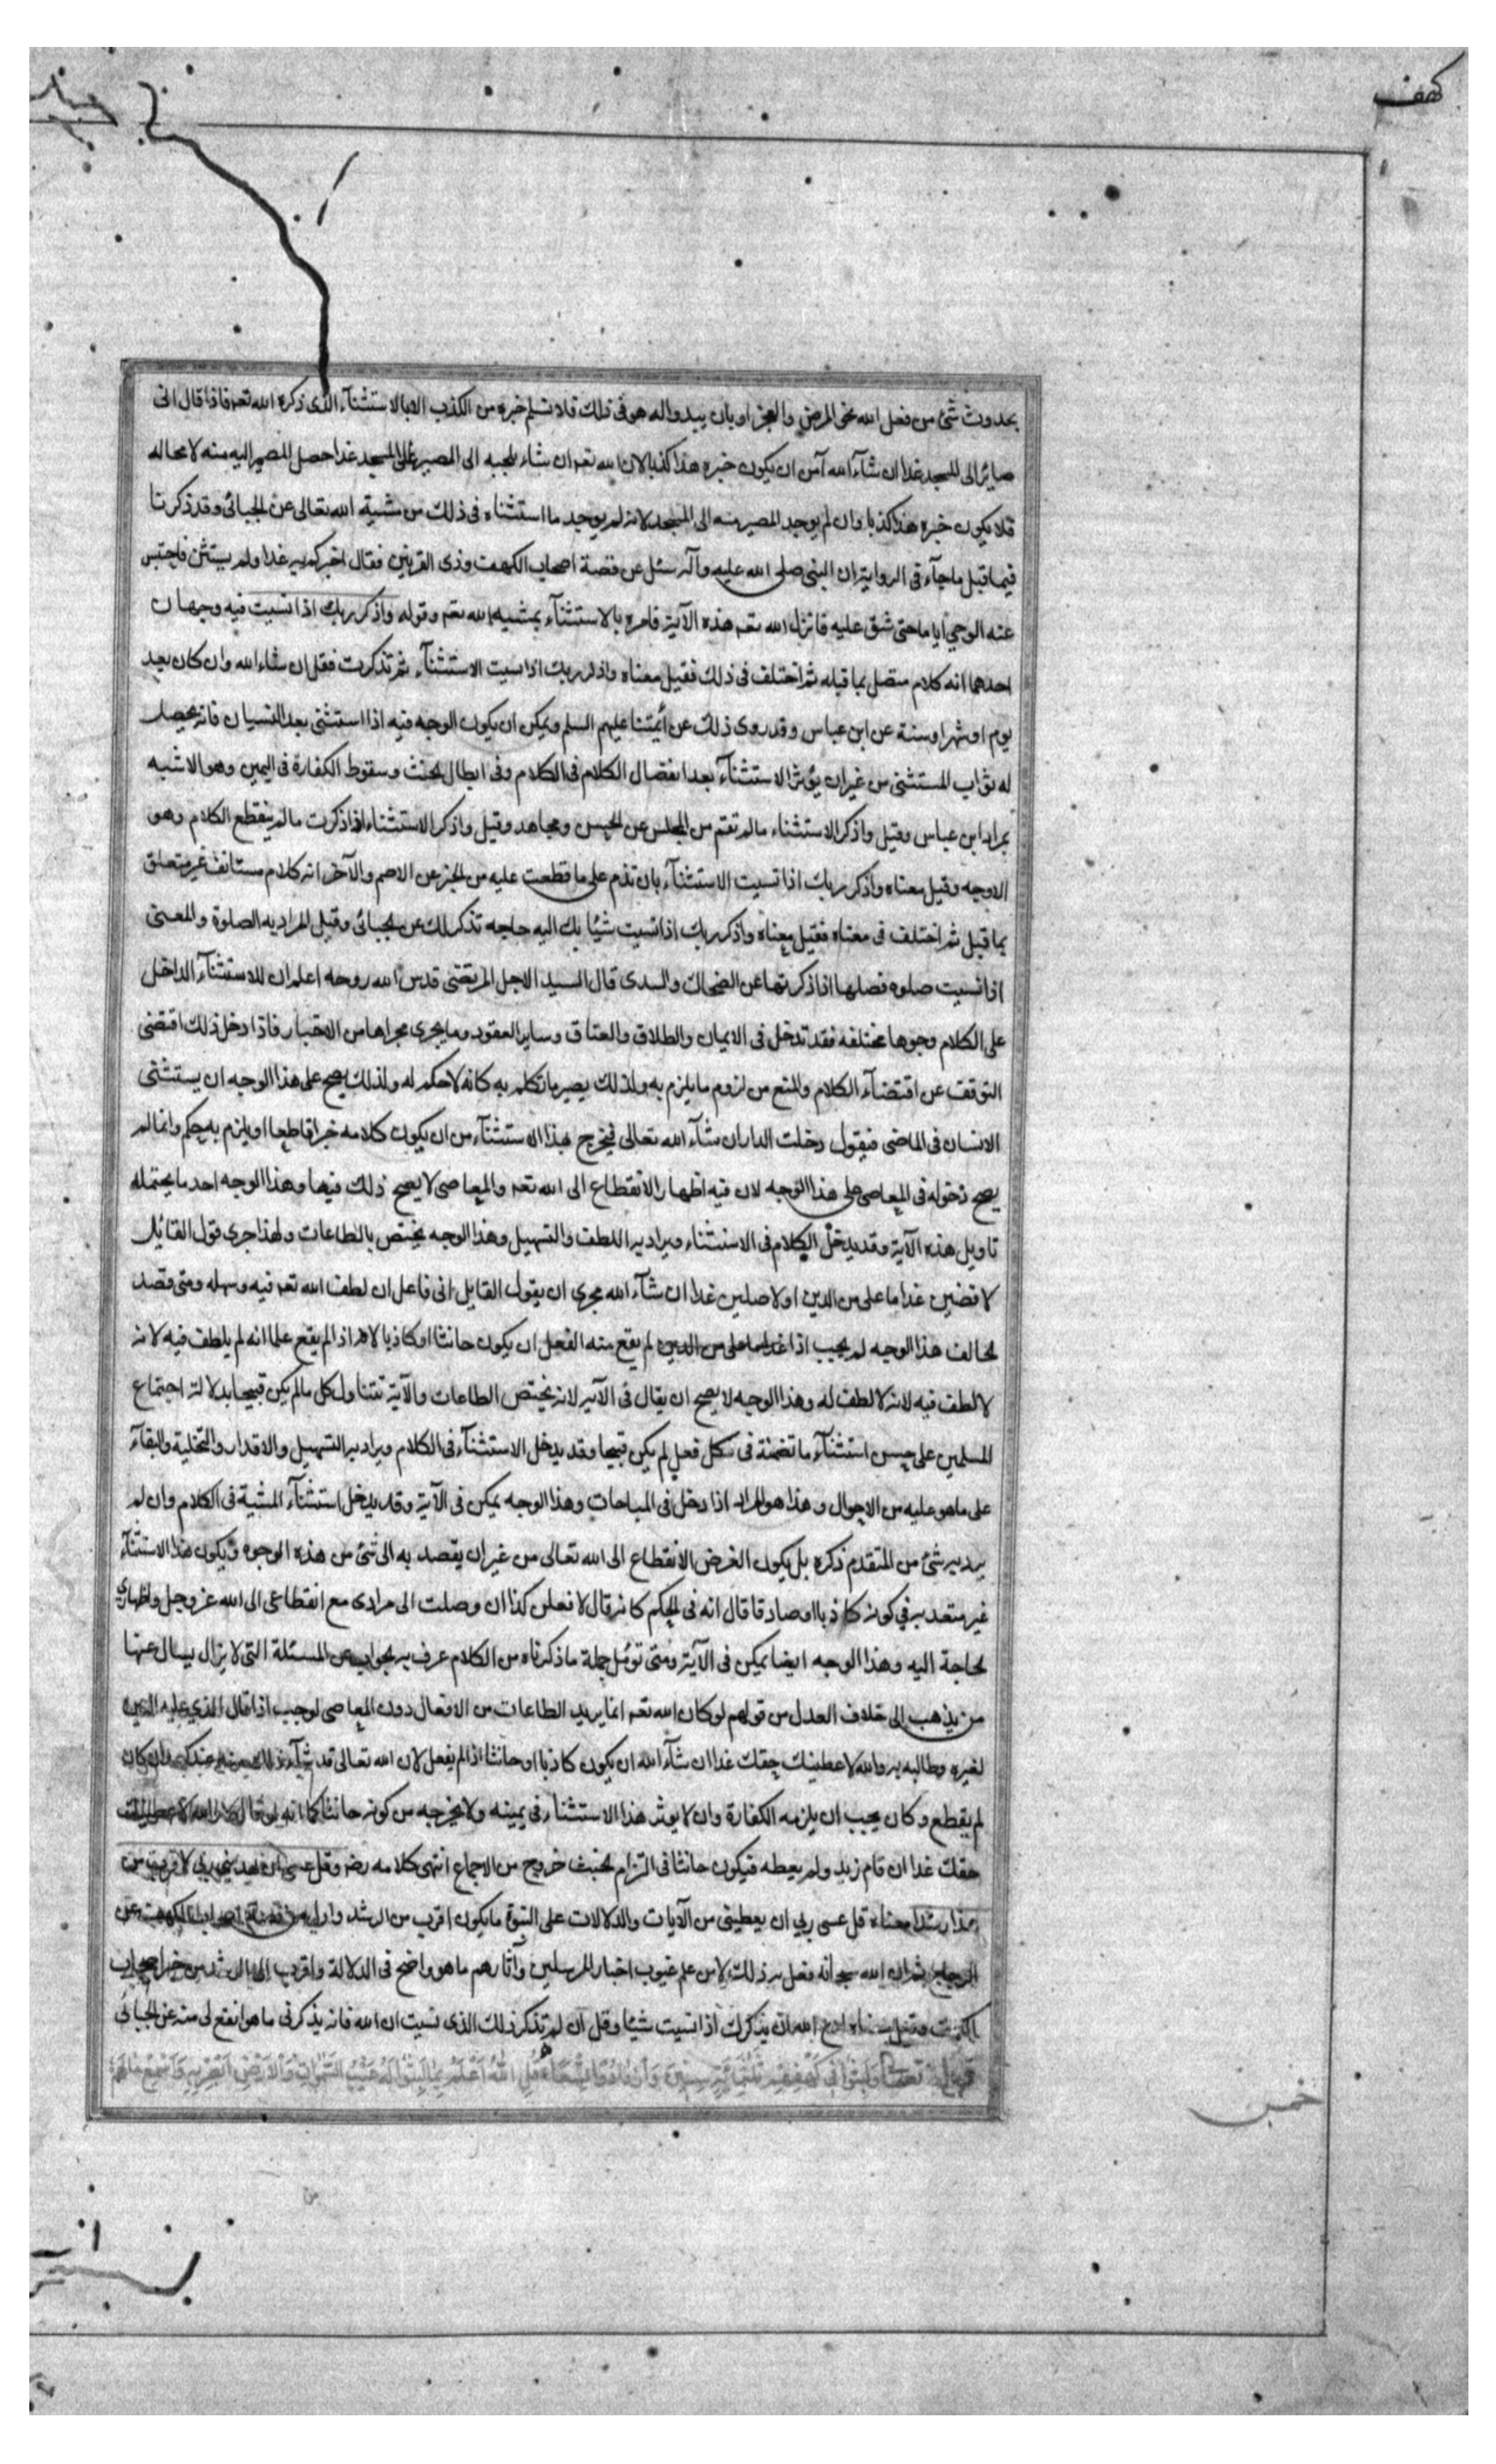 كهف
بحدوث شئ من فعل الله نحو المرض والعجز او بان يبدو له هو فى ذلك فلا تسلم خبره من الكذب الا بالاستثنآء الذى ذكره الله تعه فاذا قال انى
صاير الى المسجد غدا ان شآء الله آمن ان يكون خبره هذا كذبا لان الله تعه ان شاء يلجئه الى المصير الى المسجد غدا حصل المصير اليه منه لا محاله
فلا يكون خبره هذا كذبا وان لم يوجد المصير منه الى المسجد لانه لم يوجد ما استثناه فى ذلك من مشية الله تعالى عن الجبائى وقد ذكرنا
فيما قبل ما جآء فى الرواية ان النبى صلى الله عليه وآله سئل عن قصة اصحاب الكهف وذى القرنين فقال اخبركم به غدا ولم يستثن فاحتبس
عنه الوحي اياما حتى شق عليه فانزل الله تعه هذه الآية فامره بالاستثنآء بمشيه الله تعه وقوله واذكر ربك اذا نسيت فيه وجهان
احدهما انه كلام متصل بما قبله ثم اختلف فى ذلك فقيل معناه واذكر ربك اذا نسيت الاستثنآء ثم تذكرت فقل ان شاء الله وان كان بعد
يوم او شهر او سنة عن ابن عباس وقد روى ذلك عن أئمتنا عليهم السلم ويمكن ان يكون الوجه فيه اذا استثنى بعد النسيان فانه يحصل
له ثواب المستثنى من غير ان يؤثر الاستثنآء بعد انفصال الكلام فى الكلام وفى ابطال الحنث وسقوط الكفارة فى اليمين وهو الاشبه
بمراد ابن عباس وقيل واذكر الاستثناء ما لم تقم من المجلس عن الحسن ومجاهد وقيل واذكر الاستثناء اذا ذكرت ما لم ينقطع الكلام وهو
الاوجه وقيل معناه واذكر ربك اذا نسيت الاستثنآء بان تندم على ما قطعت عليه من الخبر عن الاصم والآخر انه كلام مستانف غير متعلق
بما قبل ثم اختلف فى معناه فقيل معناه واذكر ربك اذا نسيت شيئا بك اليه حاجه تذكر لك عن الجبائى وقيل المراد به الصلوة والمعنى
اذا نسيت صلوه فصلها اذا ذكرتها عن الضحاك والسدى قال السيد الاجل المرتضى قدس الله روحه اعلم ان للاستثنآء الداخل
على الكلام وجوها مختلفه فقد تدخل فى الايمان والطلاق والعتاق وساير العقود وما يجرى مجراها من الاخبار فاذا دخل ذلك اقتضى
التوقف عن اقتضآء الكلام والمنع من لزوم ما يلزم به ولذلك يصير ما تكلم به كانه لا حكم له ولذلك يصح على هذا الوجه ان يستثنى
الانسان فى الماضى فيقول دخلت الدار ان شآء الله تعالى فيخرج بهذا الاستثنآء من ان يكون كلامه خبرا قاطعا او يلزم به حكم وانما لم
يصح دخوله فى المعاصى على هذا الوجه لان فيه اظهار الانقطاع الى الله تعه والمعاصى لا يصح ذلك فيها وهذا الوجه احد ما يحتمله
تاويل هذه الآية وقد يدخل الكلام فى الاستثناء ويراد به اللطف والتسهيل وهذا الوجه يختص بالطاعات ولهذا جرى قول القائل
لاقضين غدا ما على من الدين او لاصلين غدا ان شآء الله مجرى ان يقول القايل انى فاعل ان لطف الله تعه فيه وسهله ومتى قصد
الحالف هذا الوجه لم يجب اذا لم يقع منه الفعل ان يكون حانثا او كاذبا لانه اذا لم يقع علما انه لم يلطف فيه لانه
لا لطف فيه لانه لا لطف له وهذا الوجه لا يصح ان يقال فى الآية لانه يختص الطاعات والآية تتناول كل ما لم يكن قبيحا بدلالة اجتماع
المسلمين على حسن استثنآء ما تضمنه فى كل فعل لم يكن قبيحا وقد يدخل الاستثنآء فى الكلام ويراد به التسهيل والاقدار والتخلية والبقآء
على ما هو عليه من الاحوال وهذا هو المراد اذا دخل فى المباحات وهذا الوجه يمكن فى الآية وقد يدخل استثنآء المشية فى الكلام وان لم
يرد به شئ من المتقدم ذكره بل يكون الغرض الانقطاع الى الله تعالى من غير ان يقصد به الى شئ من هذه الوجوه ويكون هذا الاستثنآء
غير معتد به فى كونه كاذبا او صادقا قال انه فى الحكم كانه قال لافعلن كذا ان وصلت الى مرادى مع انقطاعى الى الله عز وجل واظهارى
لحاجة اليه وهذا الوجه ايضا يمكن فى الآية ومتى تؤمل جملة ما ذكرناه من الكلام عرف به الجواب عن المسئلة التى لا يزال يسال عنها
من يذهب الى خلاف العدل من قولهم لو كان الله تعه انما يريد الطاعات من الافعال دون المعاصى لوجب اذا قال الذى عليه الدين
لغيره وطالبه به والله لاعطينك حقك غدا ان شآء الله ان يكون كاذبا او حانثا اذا لم يفعل لان الله تعالى قد شآء ذلك منه عندكم وان كان
لم يقطع وكان يجب ان يلزمه الكفارة وان لا يوثر هذا الاستثناء فى يمينه ولا يخرجه من كونه حانثا كما انه لو قال والله لاعطينك
حقك غدا ان قام زيد ولم يعطه فيكون حانثا فى التزام الحنث خروج من الاجماع انتهى كلامه رضه وقل عسى ان يهدينى ربى لاقرب من
هذا رشدا معناه قل عسى ربى ان يعطينى من الآيات والدلالات على النبوة ما يكون اقرب من الرشد وادل من قصة اصحاب الكهف عن
الزجاج ثم ان الله سبحانه فعل به ذلك من علم غيوب اخبار المرسلين وآثارهم ما هو واضح فى الدلالة واقرب الى الرشد من خبر اصحاب
الكهف وقيل معناه ادع الله ان يذكرك اذا نسيت شيئا وقل ان لم تذكر ذلك الذى نسيت ان الله فانه يذكرنى ما هو انفع لى منه عن الجبائى
قوله تعالى وَلَبِثُوا فِي كَهْفِهِمْ ثَلٰثَمِائَةٍ سِنِينَ وَازْدَادُوا تِسْعًا قُلِ اللّٰهُ أَعْلَمُ بِمَا لَبِثُوا لَهُ غَيْبُ السَّمٰوَاتِ وَالْاَرْضِ أَبْصِرْ بِهِ وَأَسْمِعْ مَا لَهُمْ
خمس